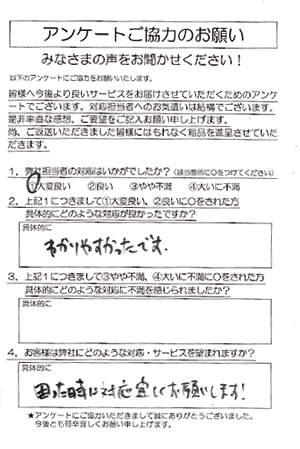 アンケートご協力のお願い
みなさまの声をお聞かせください！
以下のアンケートにご協力をお願いいたします。
皆様へ今後より良いサービスをお届けさせていただくためのアンケ
ートでございます。対応担当者へのお気遣いは結構でございます。
是非率直な感想、ご要望をご記入お願い申し上げます。
尚、ご返送いただきました皆様にはもれなく粗品を進呈させていた
だきます。
1．弊社担当者の対応はいかがでしたか？（該当箇所に○をつけてください）
①大変良い　②良い　③やや不満　④大いに不満
2．上記1につきまして①大変良い、②良いに○をされた方
具体的にどのような対応が良かったですか？
具体的に
わかりやすかったです。
3．上記1につきまして③やや不満、④大いに不満に○をされた方
具体的にどのような対応に不満を感じられましたか？
具体的に
4．お客様は弊社にどのような対応・サービスを望まれますか？
具体的に
困った時に対応宜しくお願いします！
★アンケートにご協力いただきまして誠にありがとうございました。
今後とも何卒宜しくお願い申し上げます。